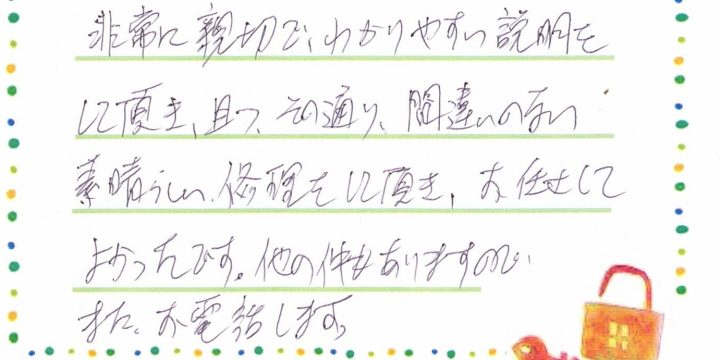 非常に親切で、わかりやすい説明を
して頂き、且つ、その通り、間違いのない
素晴らしい、修理をして頂き、お任せして
よかったです。他の件もありますので
また、お電話します。